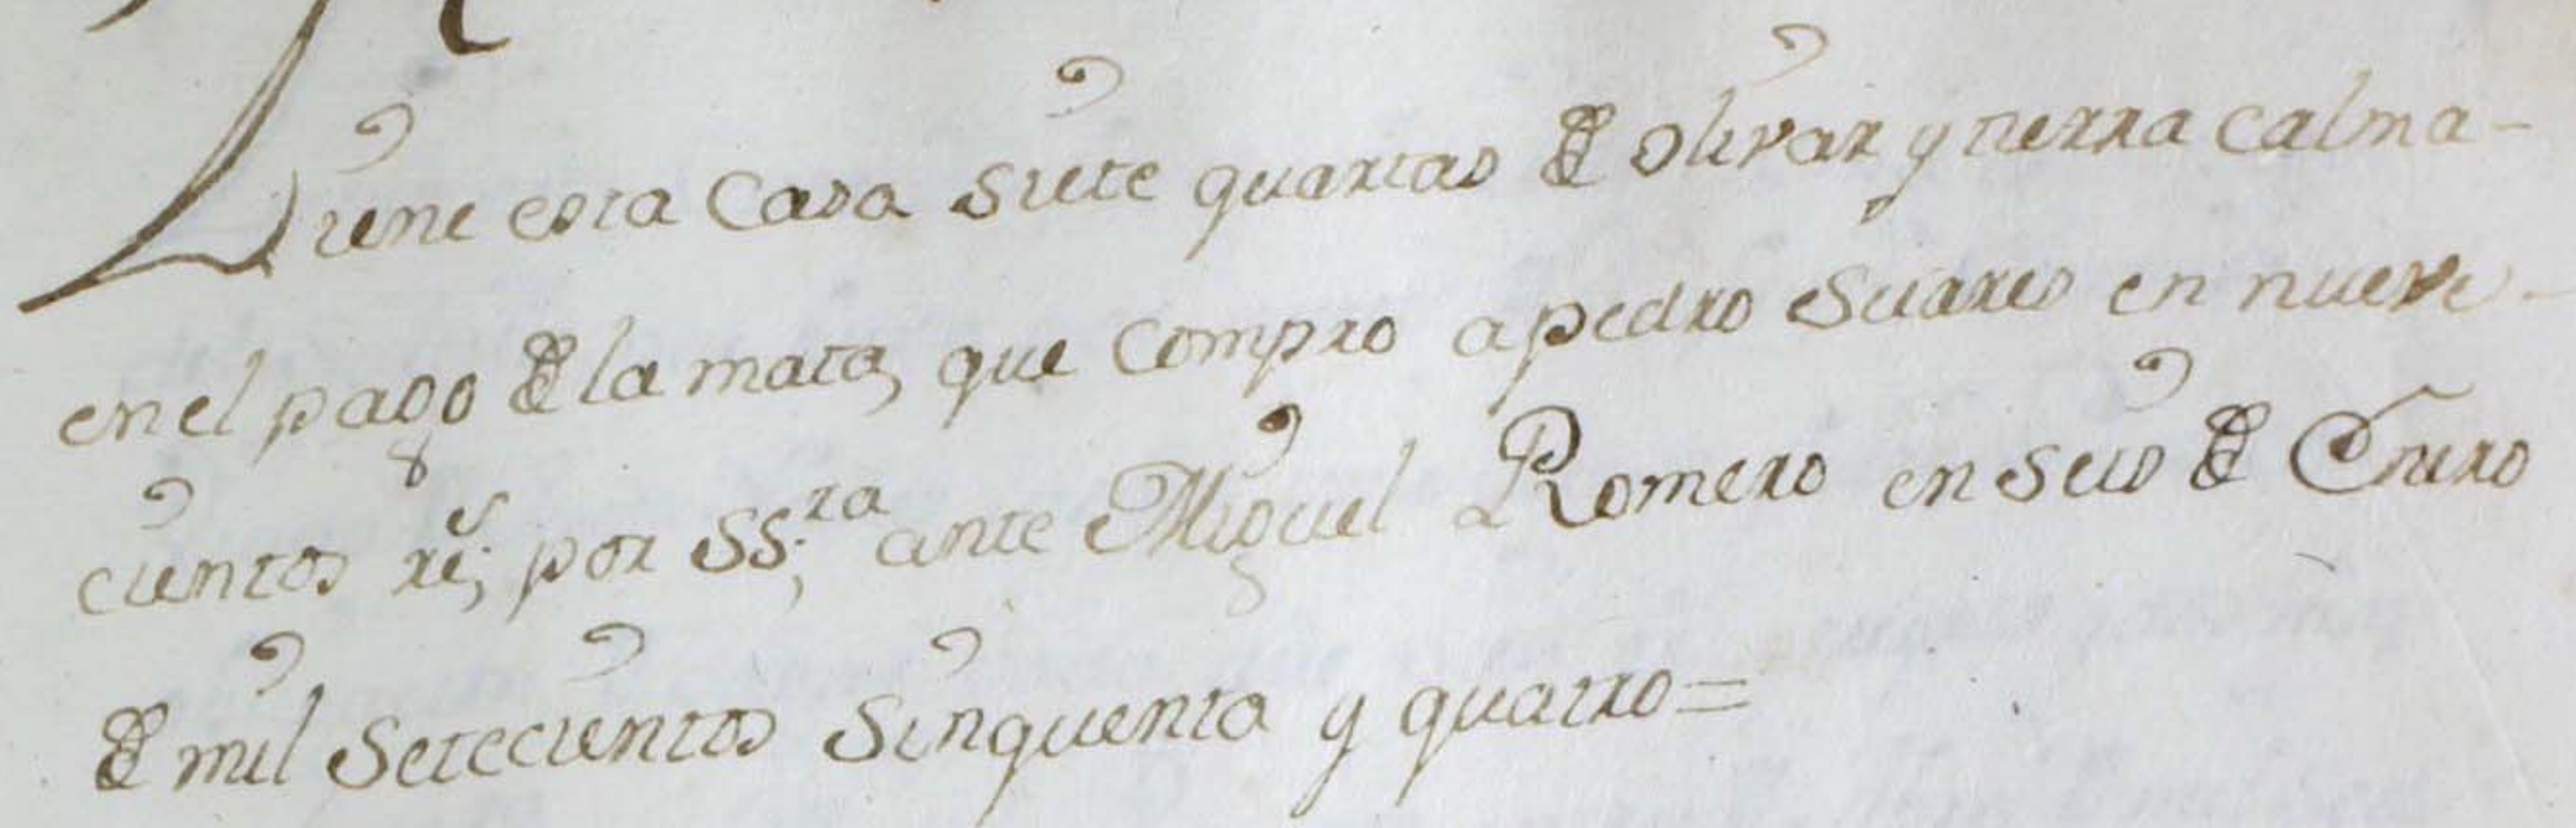 Tiene esta Casa Siete quartas de olivar y tierra calma-
en el pago de la mata, que Compro a pedro Suares en nueve-
cientos rs; por SS;ra ante Miguel Romero en seis de Enero
de mil Setecientos Sinquenta y quatro=